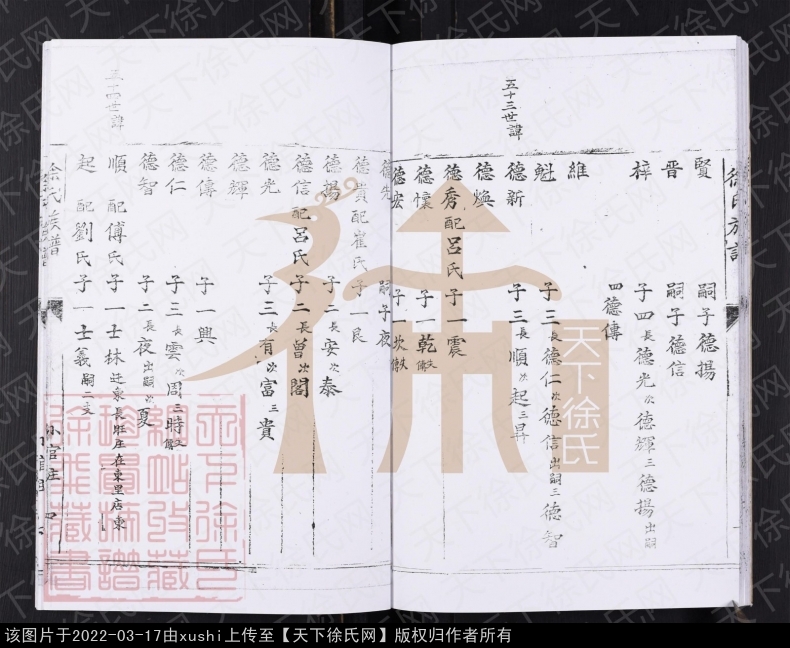 徐氏族譜
賢 嗣子德揚
晉 嗣子德信
梓 子四長德光次德輝三德揚出嗣
四德傳
維
魁 子三長德仁次德信出嗣三德智
五十三世諱
德新 子三長順次起三昇
德煥
德秀配呂氏子一震
德懷 子一乾
德宏 子一坎
德先 嗣子夜
德貫配崔氏子一艮
德揚 子二長安次泰
德信配呂氏子二長曾次閣
德光 子三長有次富三貴
德輝
德傳 子一興
德仁 子三長雲次周三時
德智 子二長夜出嗣次夏
五十四世諱
順 配傅氏子一士林迁東長旺庄在東里店東
起 配劉氏子一士義嗣二支
徐氏族譜
小官庄
天下徐氏
天下徐氏网
该图片于2022-03-17由xushi上传至【天下徐氏网】版权归作者所有